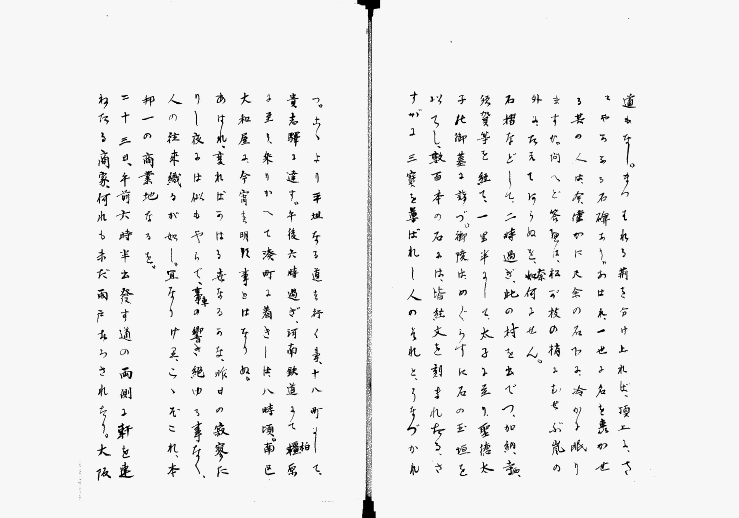 道もなし。まつはれる荊を分け上れば、頂上に、さ
ゝやかなる石碑あり。あはれ、一世に名を轟かせ
る其の人は、今僅かに尺余の石下に、冷かに眠り
ますか。問へど答無は、松が枝の梢にむせぶ嵐の
外にたえてはあらぬを、奈何せん。
石摺などして、二時過ぎ、此の村を出でつ。加納、
須賀等を経て、一里半にして太子に至り、聖徳太
子の御墓に詣づ。御陵はめぐらすに石の玉垣を
以てし、数百本の石には、皆経文を刻まれたる、さ
すがに三宝を尊ばれし人のそれと、うなづかれ
つ。こゝより平坦なる道を行く事、十八町にして、
貴志駅に達す。午後六時過ぎ、河南鉄道にて柏原
に至り、乗りかへて湊町に着きしは、八時頃。南区
大和屋に今宵も明す事とはなりぬ。
あはれ、変ればかはる世なるかな、昨日の寂寥た
りし夜には似もやらで、車の響き絶ゆる事なく、
人の往来織るが如し。宜なりけり、こゝぞこれ、本
邦一の商業地なるを。
二十三日、午前六時半出発す道の両側に軒を連
ねたる商家、何れも未だ雨戸おろされたり。大阪